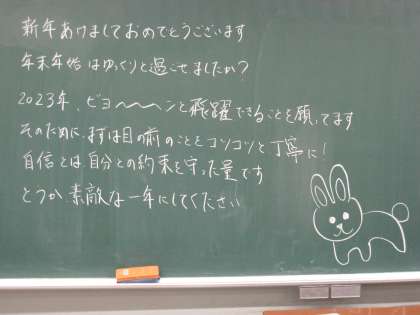 新年あけましておめでとうございます
年末年始はゆっくりと過ごせましたか?
2023年、ピョ〜〜〜ンと飛躍できることを願ってます
そのために、まずは目の前のことをコツコツと丁寧に!
自信とは自分との約束を守った量です
どうか素敵な一年にしてください